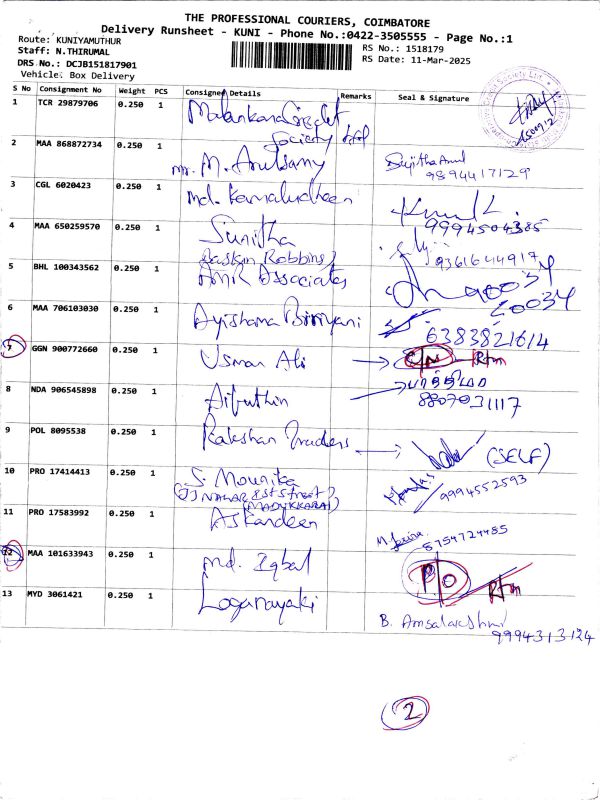 THE PROFESSIONAL COURIERS, COIMBATORE
Delivery Runsheet - KUNI - Phone No.:0422-3505555 - Page No.:1
Route: KUNIYAMUTHUR
Staff: N.THIRUMAL
DRS No.: DCJB151817901
Vehicle: Box Delivery
RS No.: 1518179
RS Date: 11-Mar-2025
S No Consignment No Weight PCS Consignee Details Remarks Seal & Signature
1 TCR 29879706 0.250 1 Malankara Credit
Society Ltd
2 MAA 868872734 0.250 1 Mr. M. Arulsamy
9894417129
3 CGL 6020423 0.250 1 Md. Kamaludheen
9994504385
4 MAA 650259570 0.250 1 Sunitha
(Baskin Robbins)
9361644917
5 BHL 100343562 0.250 1 AMR Associates
6 MAA 706103030 0.250 1 Ayishama Biriyani
6383821614
7 GGN 900772660 0.250 1 Usman Ali Rtn
8 NDA 906545898 0.250 1
8807931117
9 POL 8095538 0.250 1 Rakshan Traders (SELF)
10 PRO 17414413 0.250 1 S. Mounika
(JJ NAGAR 1st Street)
(MADUKKARAI)
9994552593
11 PRO 17583992 0.250 1 Askardeen
8754724485
12 MAA 101633943 0.250 1 Md. Iqbal P/O Rtn
13 MYD 3061421 0.250 1 Loganayaki
B. Amsalakshmi
9994313124
2